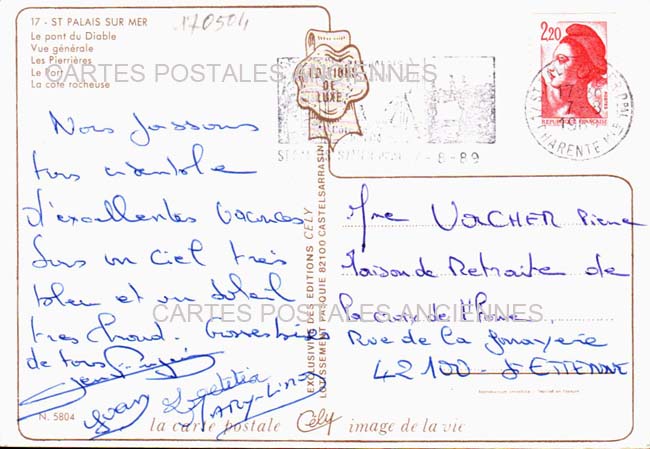 170504
17 - ST PALAIS SUR MER
Le pont du Diable
Vue générale
Les Pierrières
Le Port
La côte rocheuse
CARTES POSTALES ANCIENNES
EDITIONS
DE
LUXE
2,20
REPUBLIQUE FRANÇAISE
17
CHARENTE MME
-8-89
Nous passons
tous ensemble
d'excellentes vacances
sous un ciel très
bleu et un soleil
très chaud. Grosses bises
de tous
Yvan Laetitia
MARY-LINE
N. 5804
EXCLUSIVITE DES EDITIONS CÉLY
LOTISSEMENT PASQUE 82100 CASTELSARRASIN
Mme VACHER Pierre
Maison de Retraite de
la croix de l'Horme
CARTES POSTALES ANCIENNES
Rue de la
42100 - St ETIENNE
la carte postale Cély image de la vie